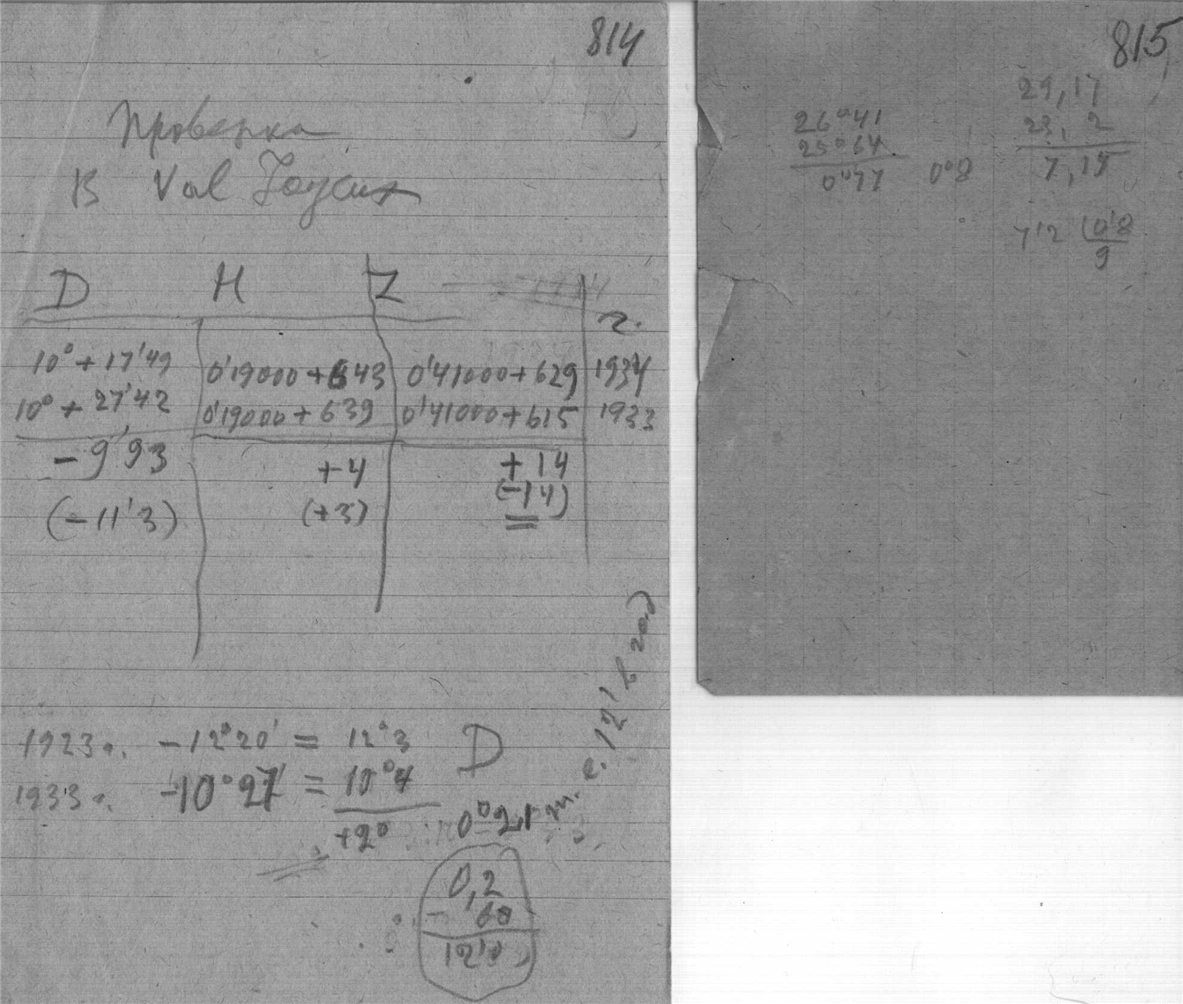 814
Проверка
В Val Joyeux
D H Z
г.
10° + 17'49 0'19000+643 0'41000+629 1934
10° + 27'42 0'19000+639 0'41000+615 1933
-9'93 +4 +14
(-11'3) (+3) (-14)
1923г. -12°20' = 12°3 D
1933г. -10°27' = 10°4
+2° 0°21 т. е. 12' в год
0,2
60
12'0
815
26°41
25°64
0°77 0°8
29,17
23, 2
7,15
7'2 (0'8
9